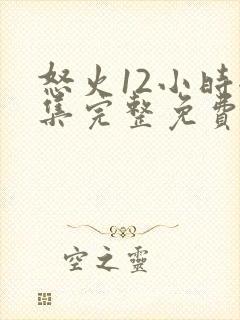 怒火12小時
集完整免費
空之靈